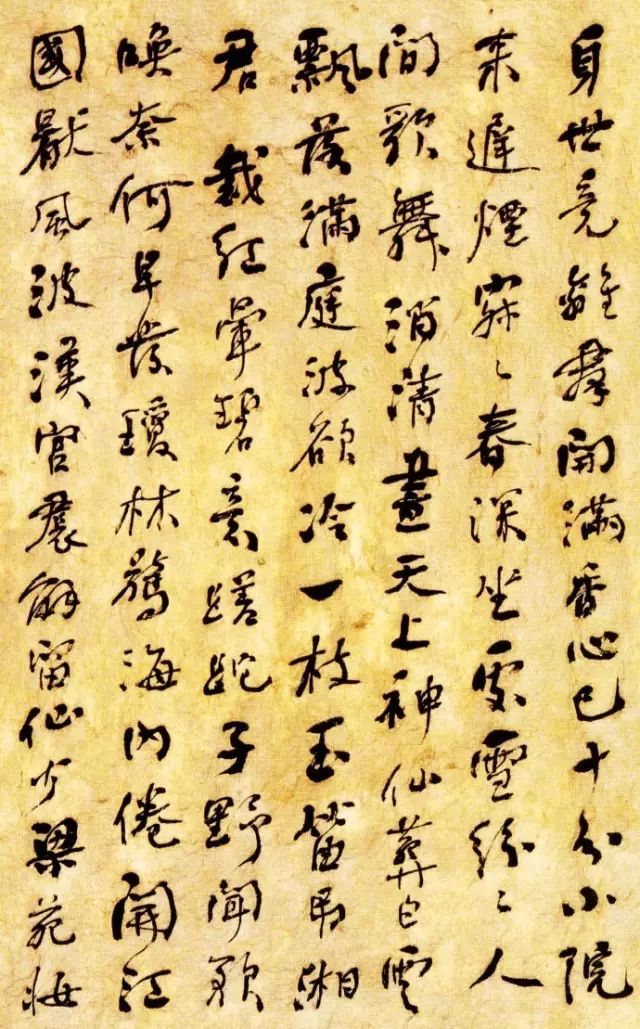 身世竟離羣開滿香心已十分小院
來遲煙寂々春深坐處雪紛々人
間歌舞消清晝天上神仙葬白雲
飄落滿庭波欲冷一枝玉笛吊湘
君 裁紅暈碧意蹉跎子野聞歌
喚奈何早發瓊林驚海內倦開江
國厭風波漢宮裠解留仙少梁苑妝